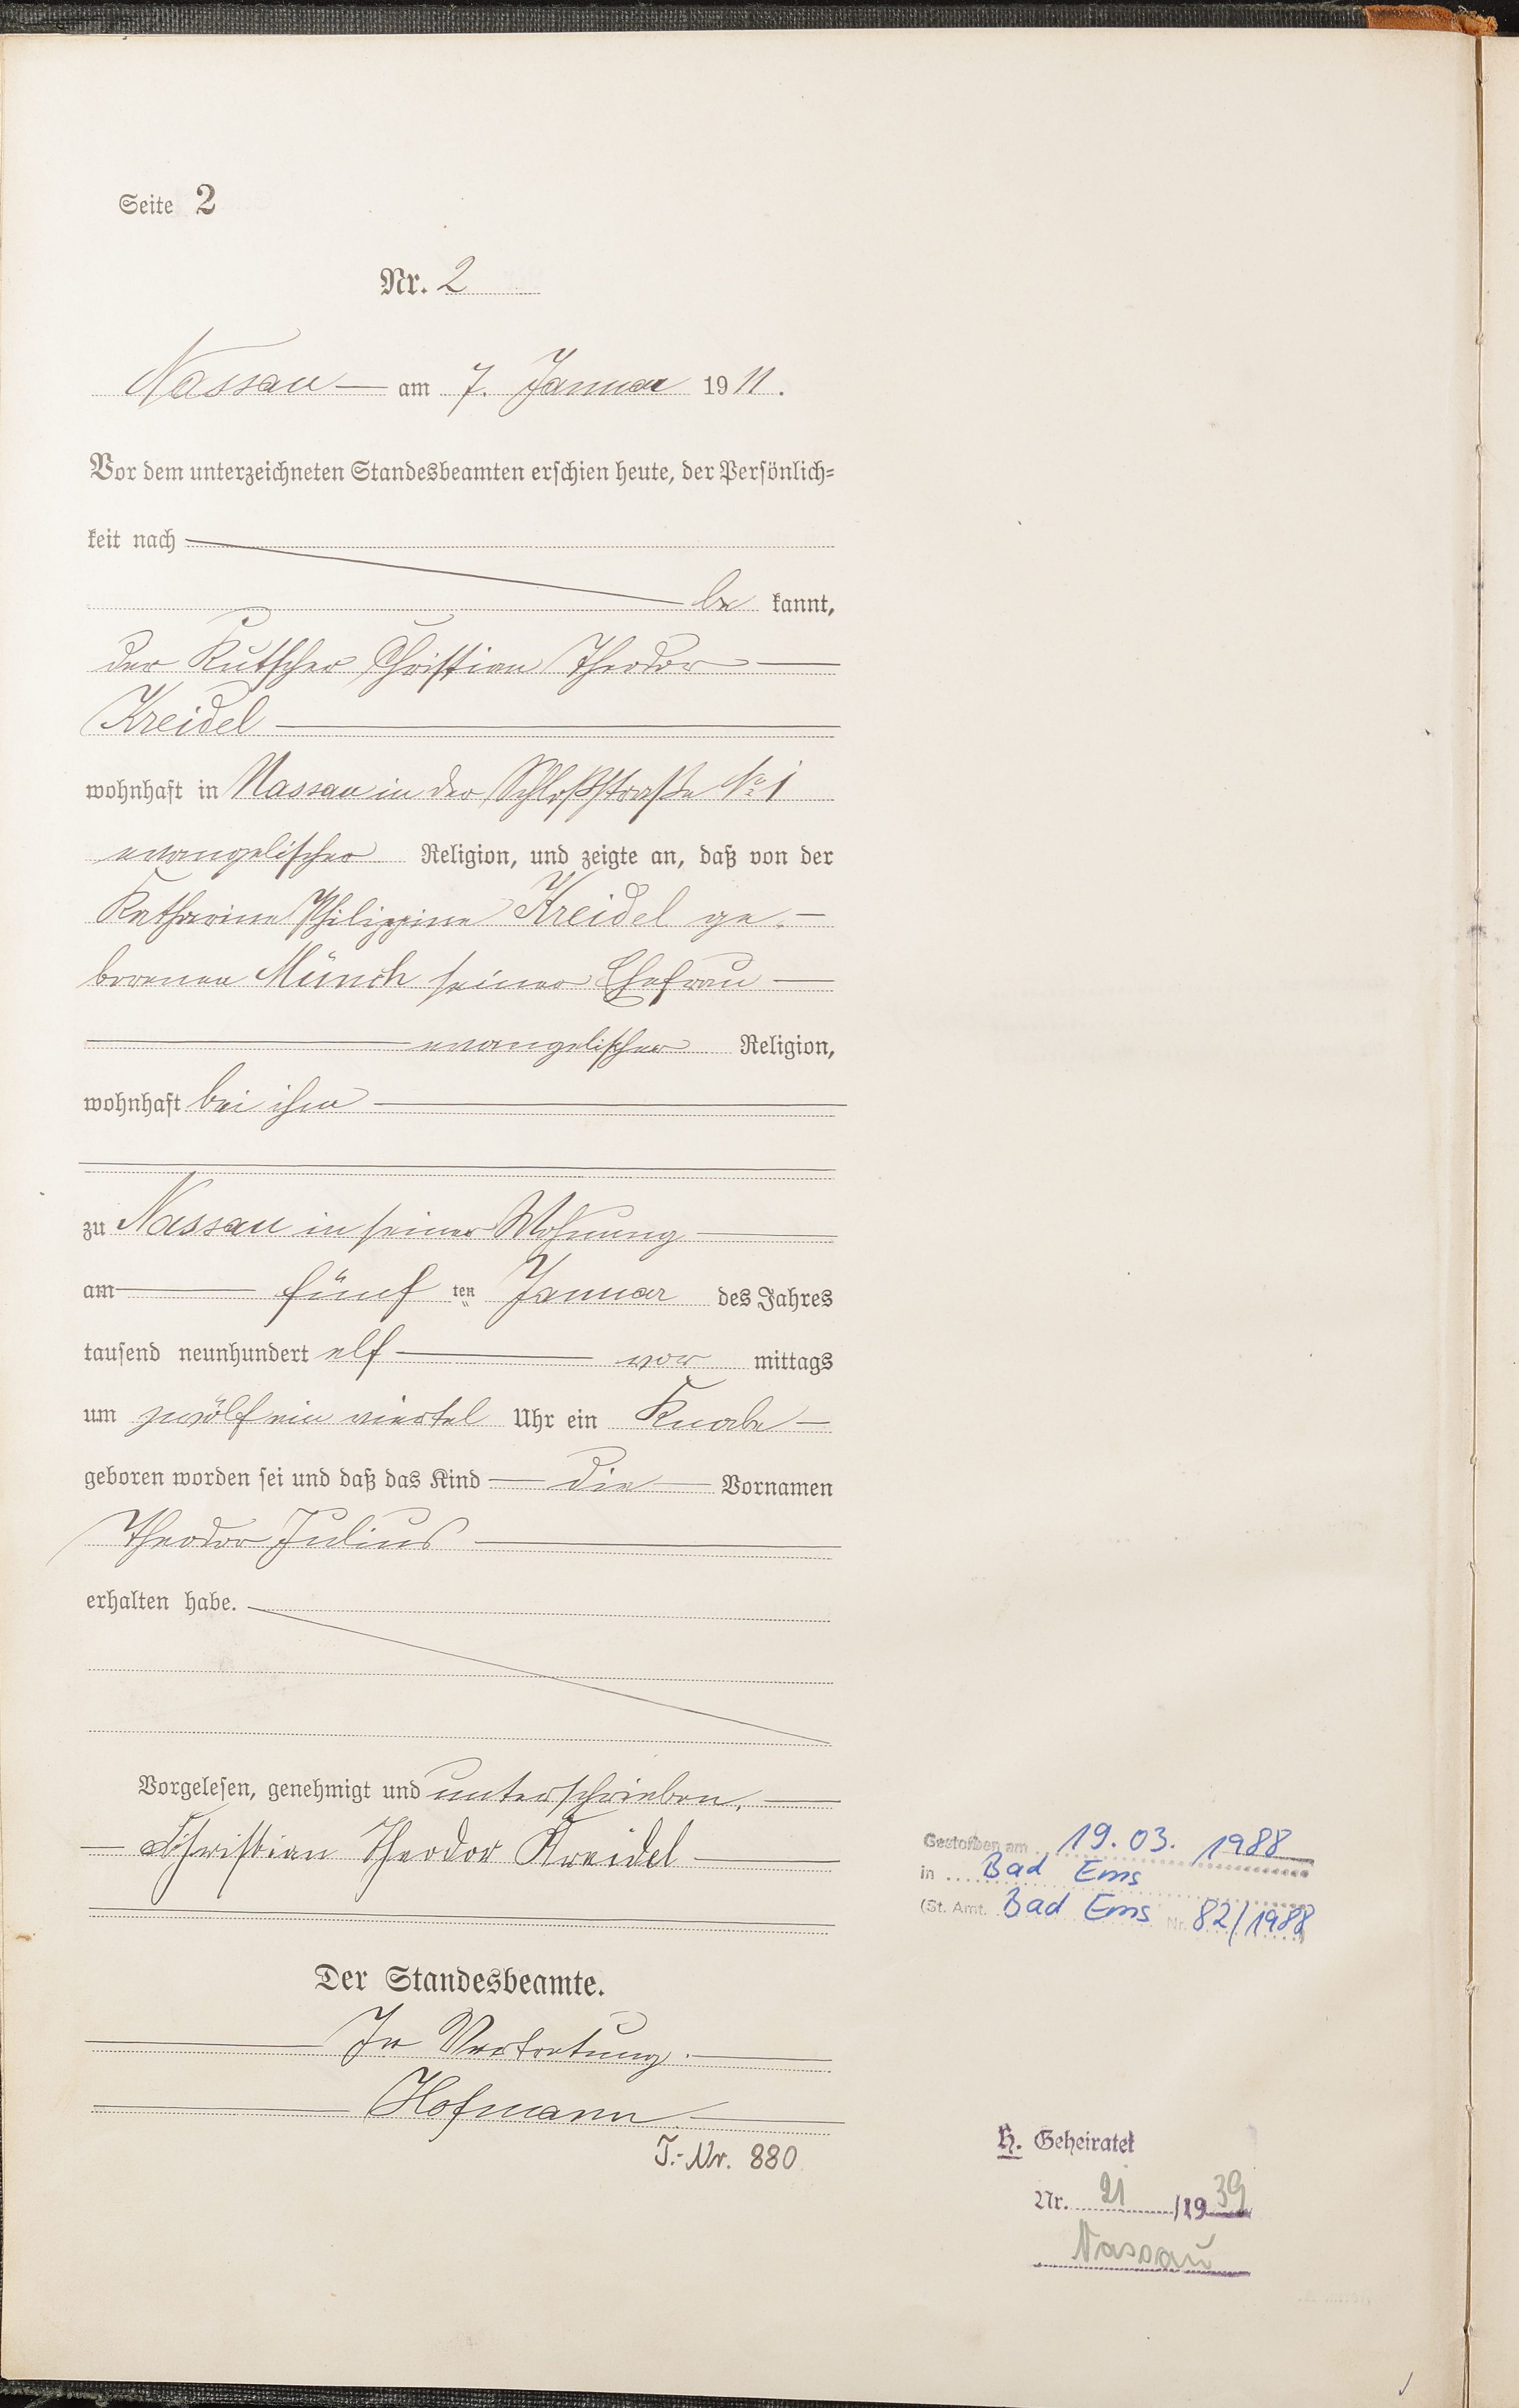 Seite 2
Nr. 2
Nassau am 7. Januar 1911.
Vor dem unterzeichneten Standesbeamten erschien heute, der Persönlich=
keit nach
be kannt,
der Kutscher Christian Theodor
Kreidel
wohnhaft in Nassau in der Schloßstraße No 1
evangelischer Religion, und zeigte an, daß von der
Katharine Philippine Kreidel ge-
borenen Münch seiner Ehefrau
evangelischer Religion,
wohnhaft bei ihm
zu Nassau in seiner Wohnung
am fünf ten Januar des Jahres
tausend neunhundert elf vor mittags
um zwölf ein viertel Uhr ein Knabe
geboren worden sei und daß das Kind die Vornamen
Theodor Julius
erhalten habe.
Vorgelesen, genehmigt und unterschrieben.
Christian Theodor Kreidel
Der Standesbeamte.
In Vertretung.
Hofmann
J.-Nr. 880
Gestorben am 19.03.1988
in Bad Ems
(St. Amt. Bad Ems Nr. 82/1988)
H. Geheiratet
Nr. 21/1939
Nassau